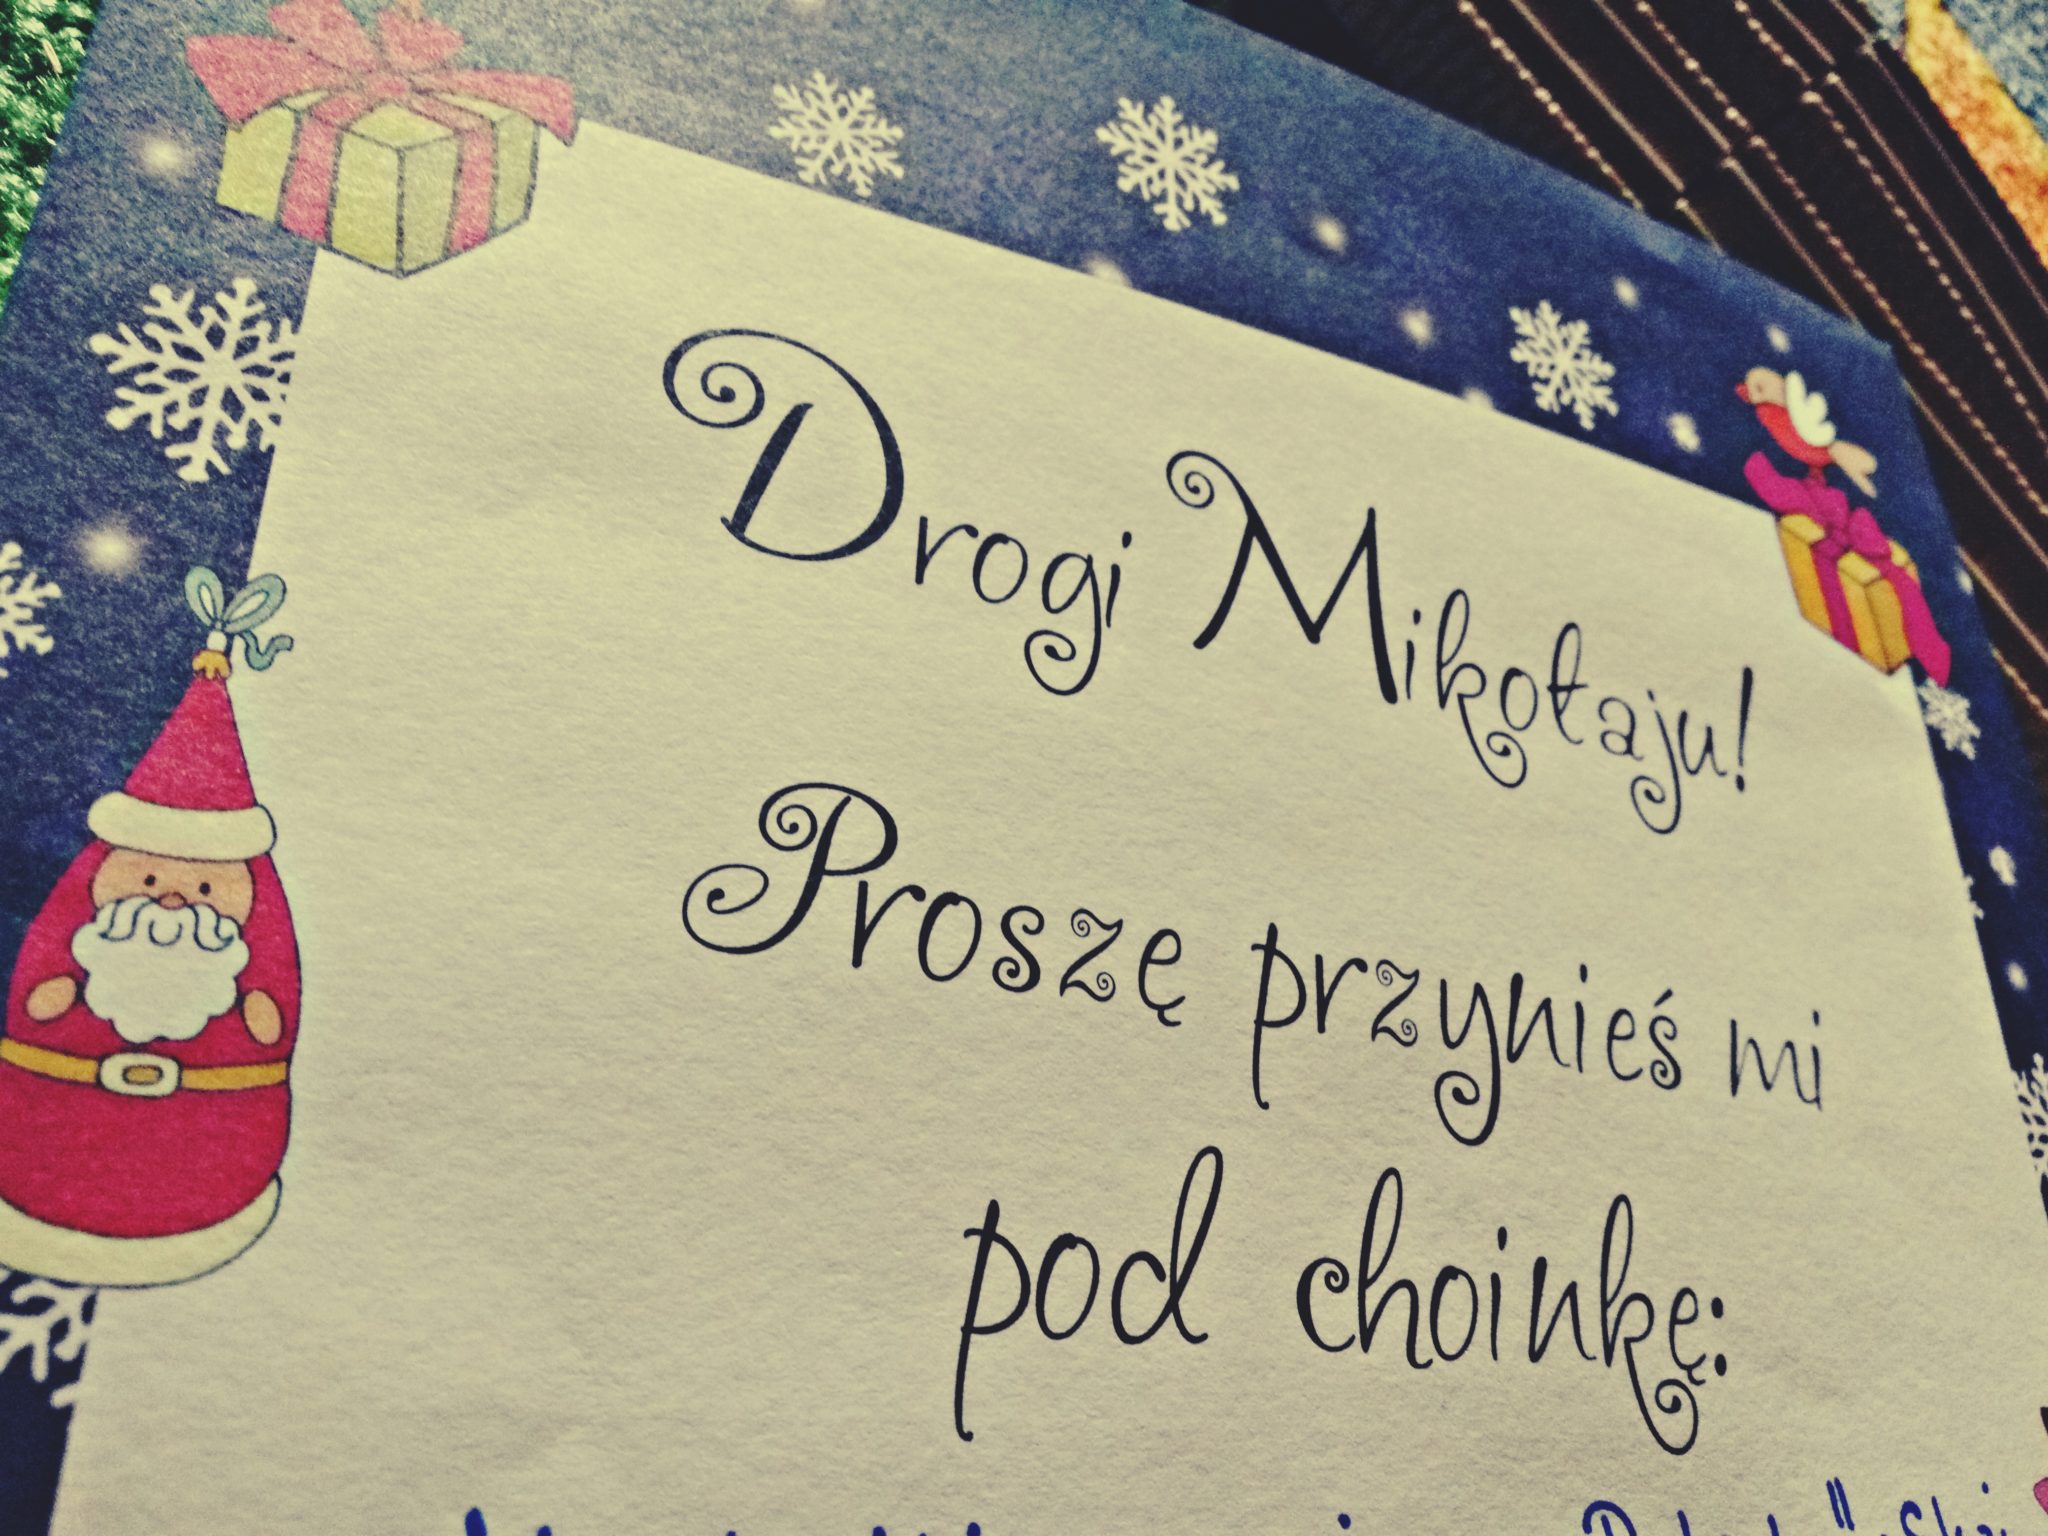 Drogi Mikołaju!
Proszę przynieś mi
pod choinkę: